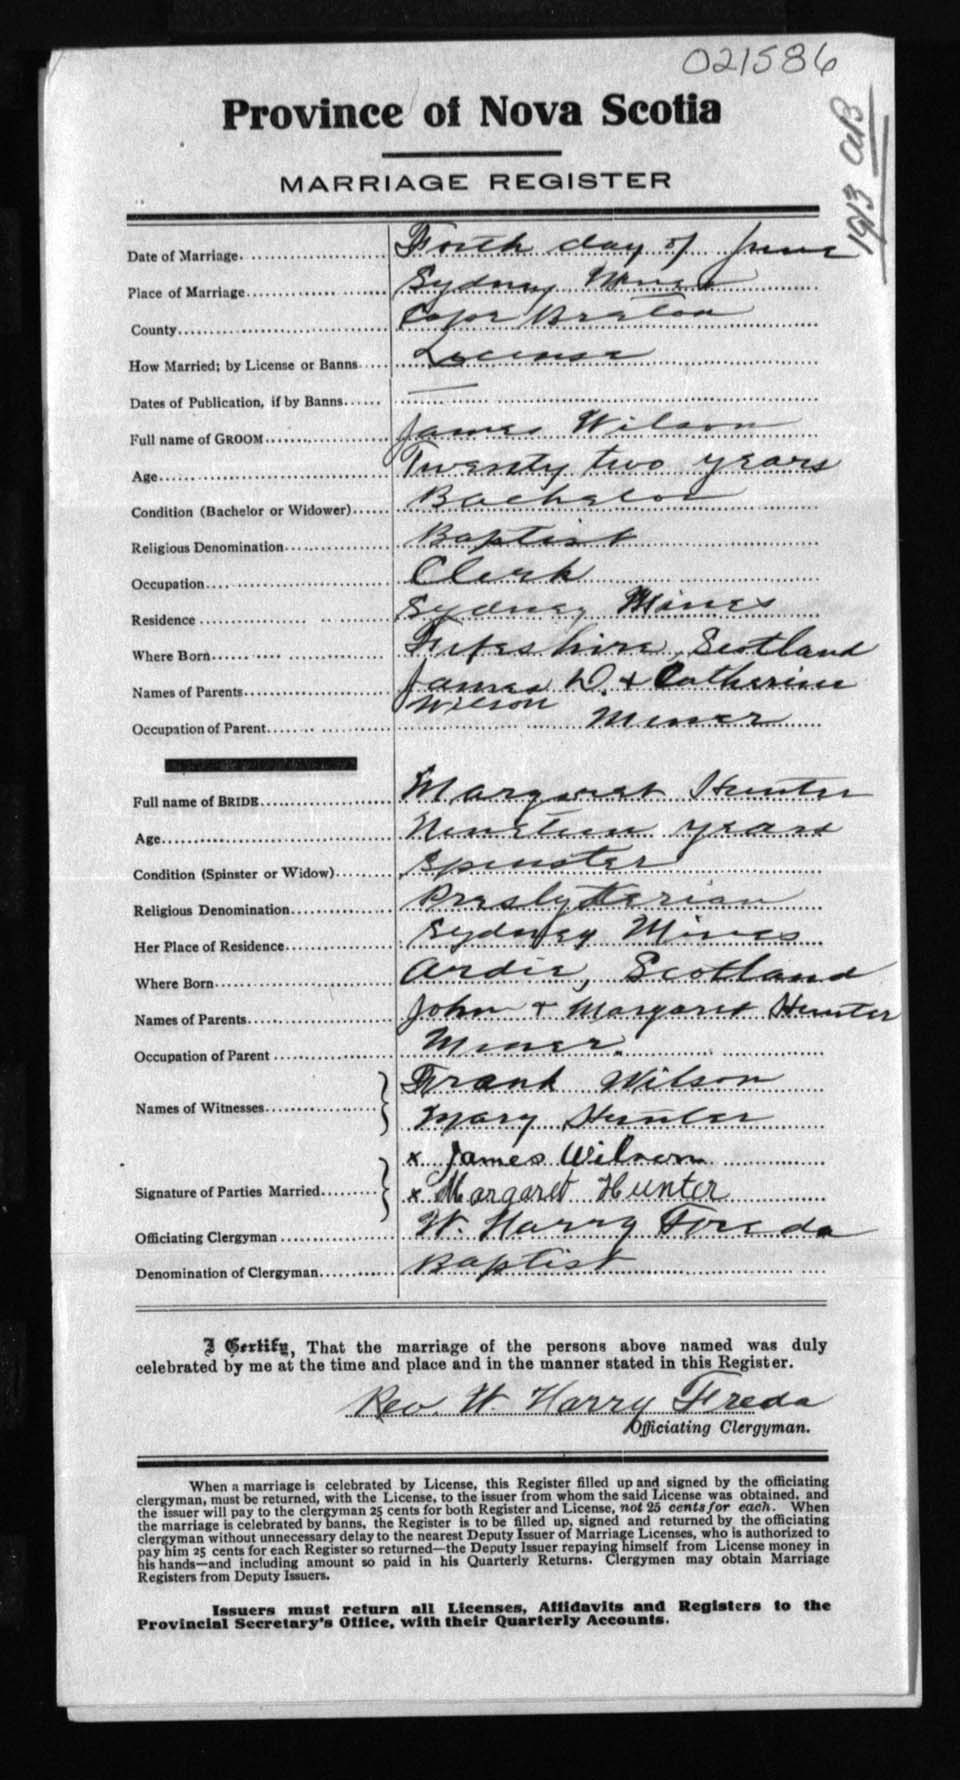 021586
1913 AB
Province of Nova Scotia
MARRIAGE REGISTER
Date of Marriage Forth day of June
Place of Marriage Sydney Mines
County Cape Breton
How Married; by License or Banns License
Dates of Publication, if by Banns —
Full name of GROOM James Wilson
Age Twenty two years
Condition (Bachelor or Widower) Bachelor
Religious Denomination Baptist
Occupation Clerk
Residence Sydney Mines
Where Born Fifeshire, Scotland
Names of Parents James D. + Catherine
Wilson
Occupation of Parent Miner
Full name of BRIDE Margaret Hunter
Age Nineteen years
Condition (Spinster or Widow) Spinster
Religious Denomination Presbyterian
Her Place of Residence Sydney Mines
Where Born Ardir, Scotland
Names of Parents John + Margaret Hunter
Occupation of Parent Miner.
Names of Witnesses Frank Wilson
Mary Hunter
x James Wilson
Signature of Parties Married x Margaret Hunter
Officiating Clergyman W. Harry Freda
Denomination of Clergyman Baptist
I Certify, That the marriage of the persons above named was duly
celebrated by me at the time and place and in the manner stated in this Register.
Rev. W. Harry Freda
Officiating Clergyman.
When a marriage is celebrated by License, this Register filled up and signed by the officiating
clergyman, must be returned, with the License, to the issuer from whom the said License was obtained, and
the issuer will pay to the clergyman 25 cents for both Register and License, not 25 cents for each. When
the marriage is celebrated by banns, the Register is to be filled up, signed and returned by the officiating
clergyman without unnecessary delay to the nearest Deputy Issuer of Marriage Licenses, who is authorized to
pay him 25 cents for each Register so returned—the Deputy Issuer repaying himself from License money in
his hands—and including amount so paid in his Quarterly Returns. Clergymen may obtain Marriage
Registers from Deputy Issuers.
Issuers must return all Licenses, Affidavits and Registers to the
Provincial Secretary's Office, with their Quarterly Accounts.